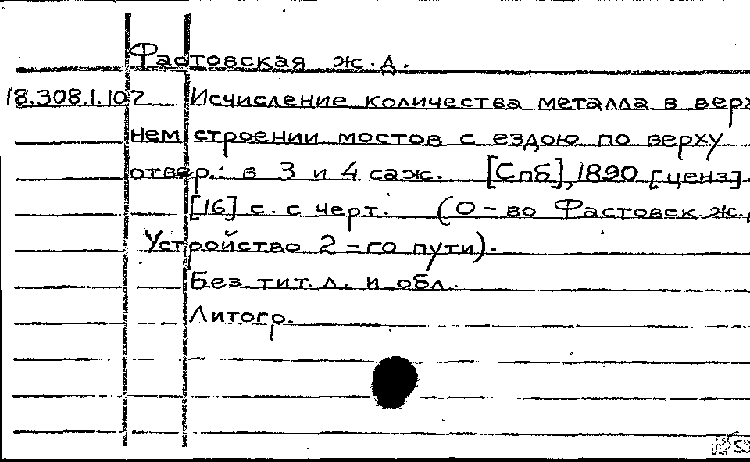 Фастовская ж.д.
18.308.1.107 Исчисление количества металла в верх
нем строении мостов с ездою по верху
отвер.: в 3 и 4 саж. [Спб], 1890 [ценз].
[16] с. с черт. (О-во Фастовск ж.д
Устройство 2=го пути).
Без тит. л. и обл.
Литогр.